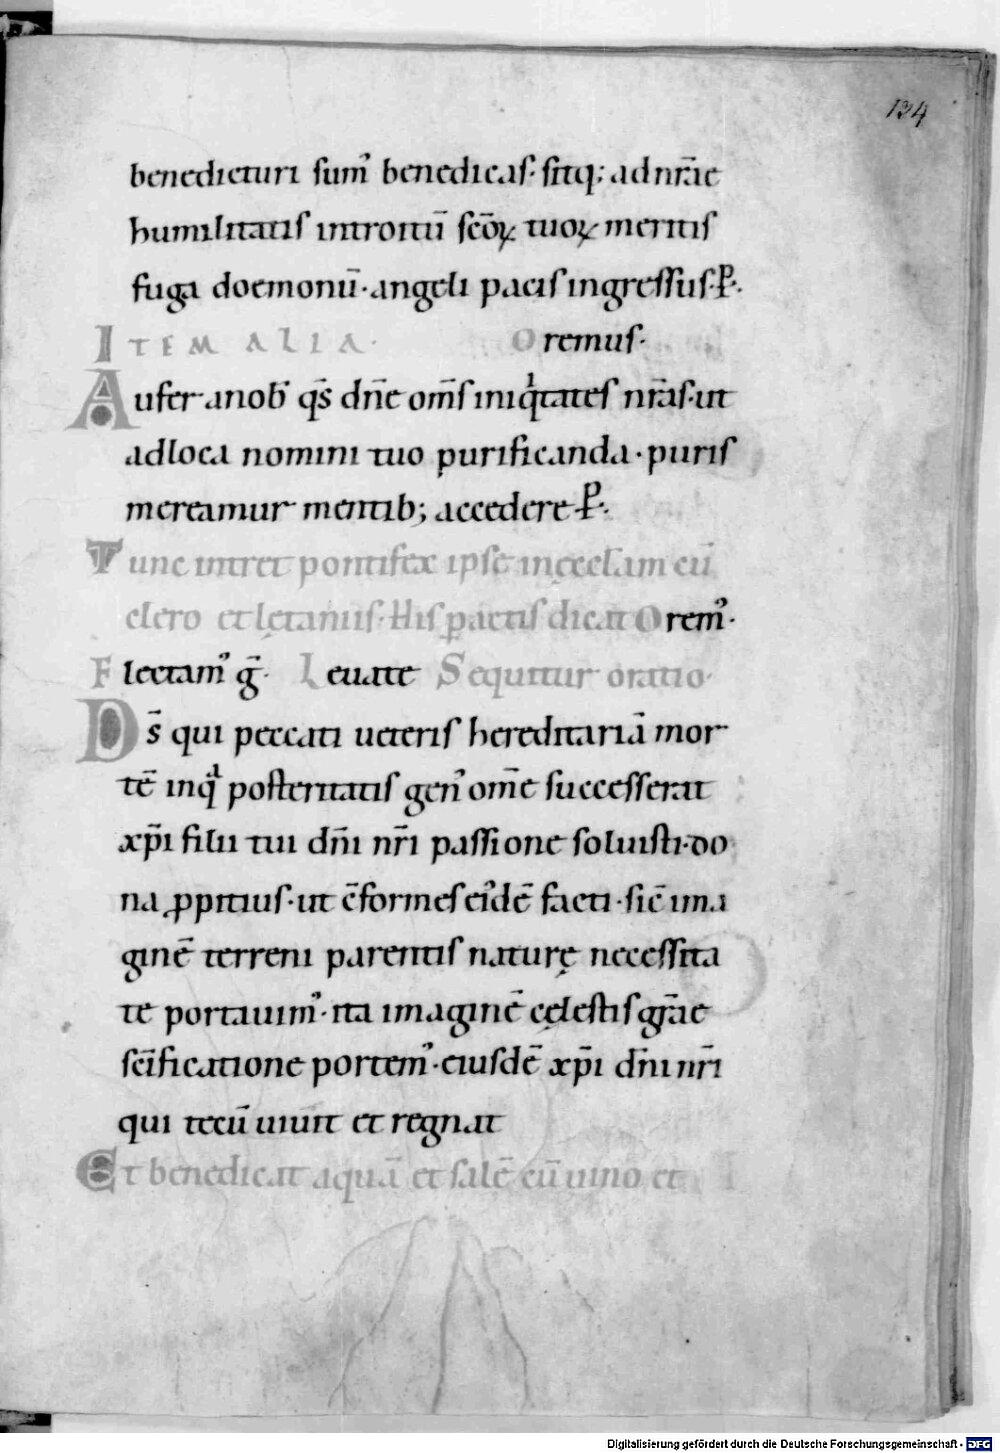 134
benedicturi sumꝰ benedicas· sitq; ad nr̄ae
humilitatis introitū sc̄oꝝ tuoꝝ meritis
fuga doemonū· angeli pacis ingressus· P̱·
ITEM ALIA· Oremus·
Aufer a nob̄ qs̄ dn̄e om̄s iniqͥtates nr̄as· ut
ad loca nomini tuo purificanda· puris
mereamur mentib; accedere P̱·
Tunc intret pontifex ipse in ęccl̄am cū
clero et lętaniis· His ꝑactis dicat Oremꝰ·
Flectamꝰ ḡ· Leuate Sequitur oratio·
Ds̄ qui peccati ueteris hereditariā mor
tē inqͣ posteritatis genꝰ om̄e successerat
xp̄i filii tui dn̄i nr̄i passione soluisti· do
na ꝓpitius· ut c̄formes eiꝰdē facti· sic̄ ima
ginē terreni parentis naturę necessita
te portauimꝰ· ita imaginē cęlestis gr̄ae
sc̄ificatione portemꝰ· eiusdē xp̄i dn̄i nr̄i
qui tecū uiuit et regnat
Et benedicat aquā et salē cū uino et
Digitalisierung gefördert durch die Deutsche Forschungsgemeinschaft - DFG